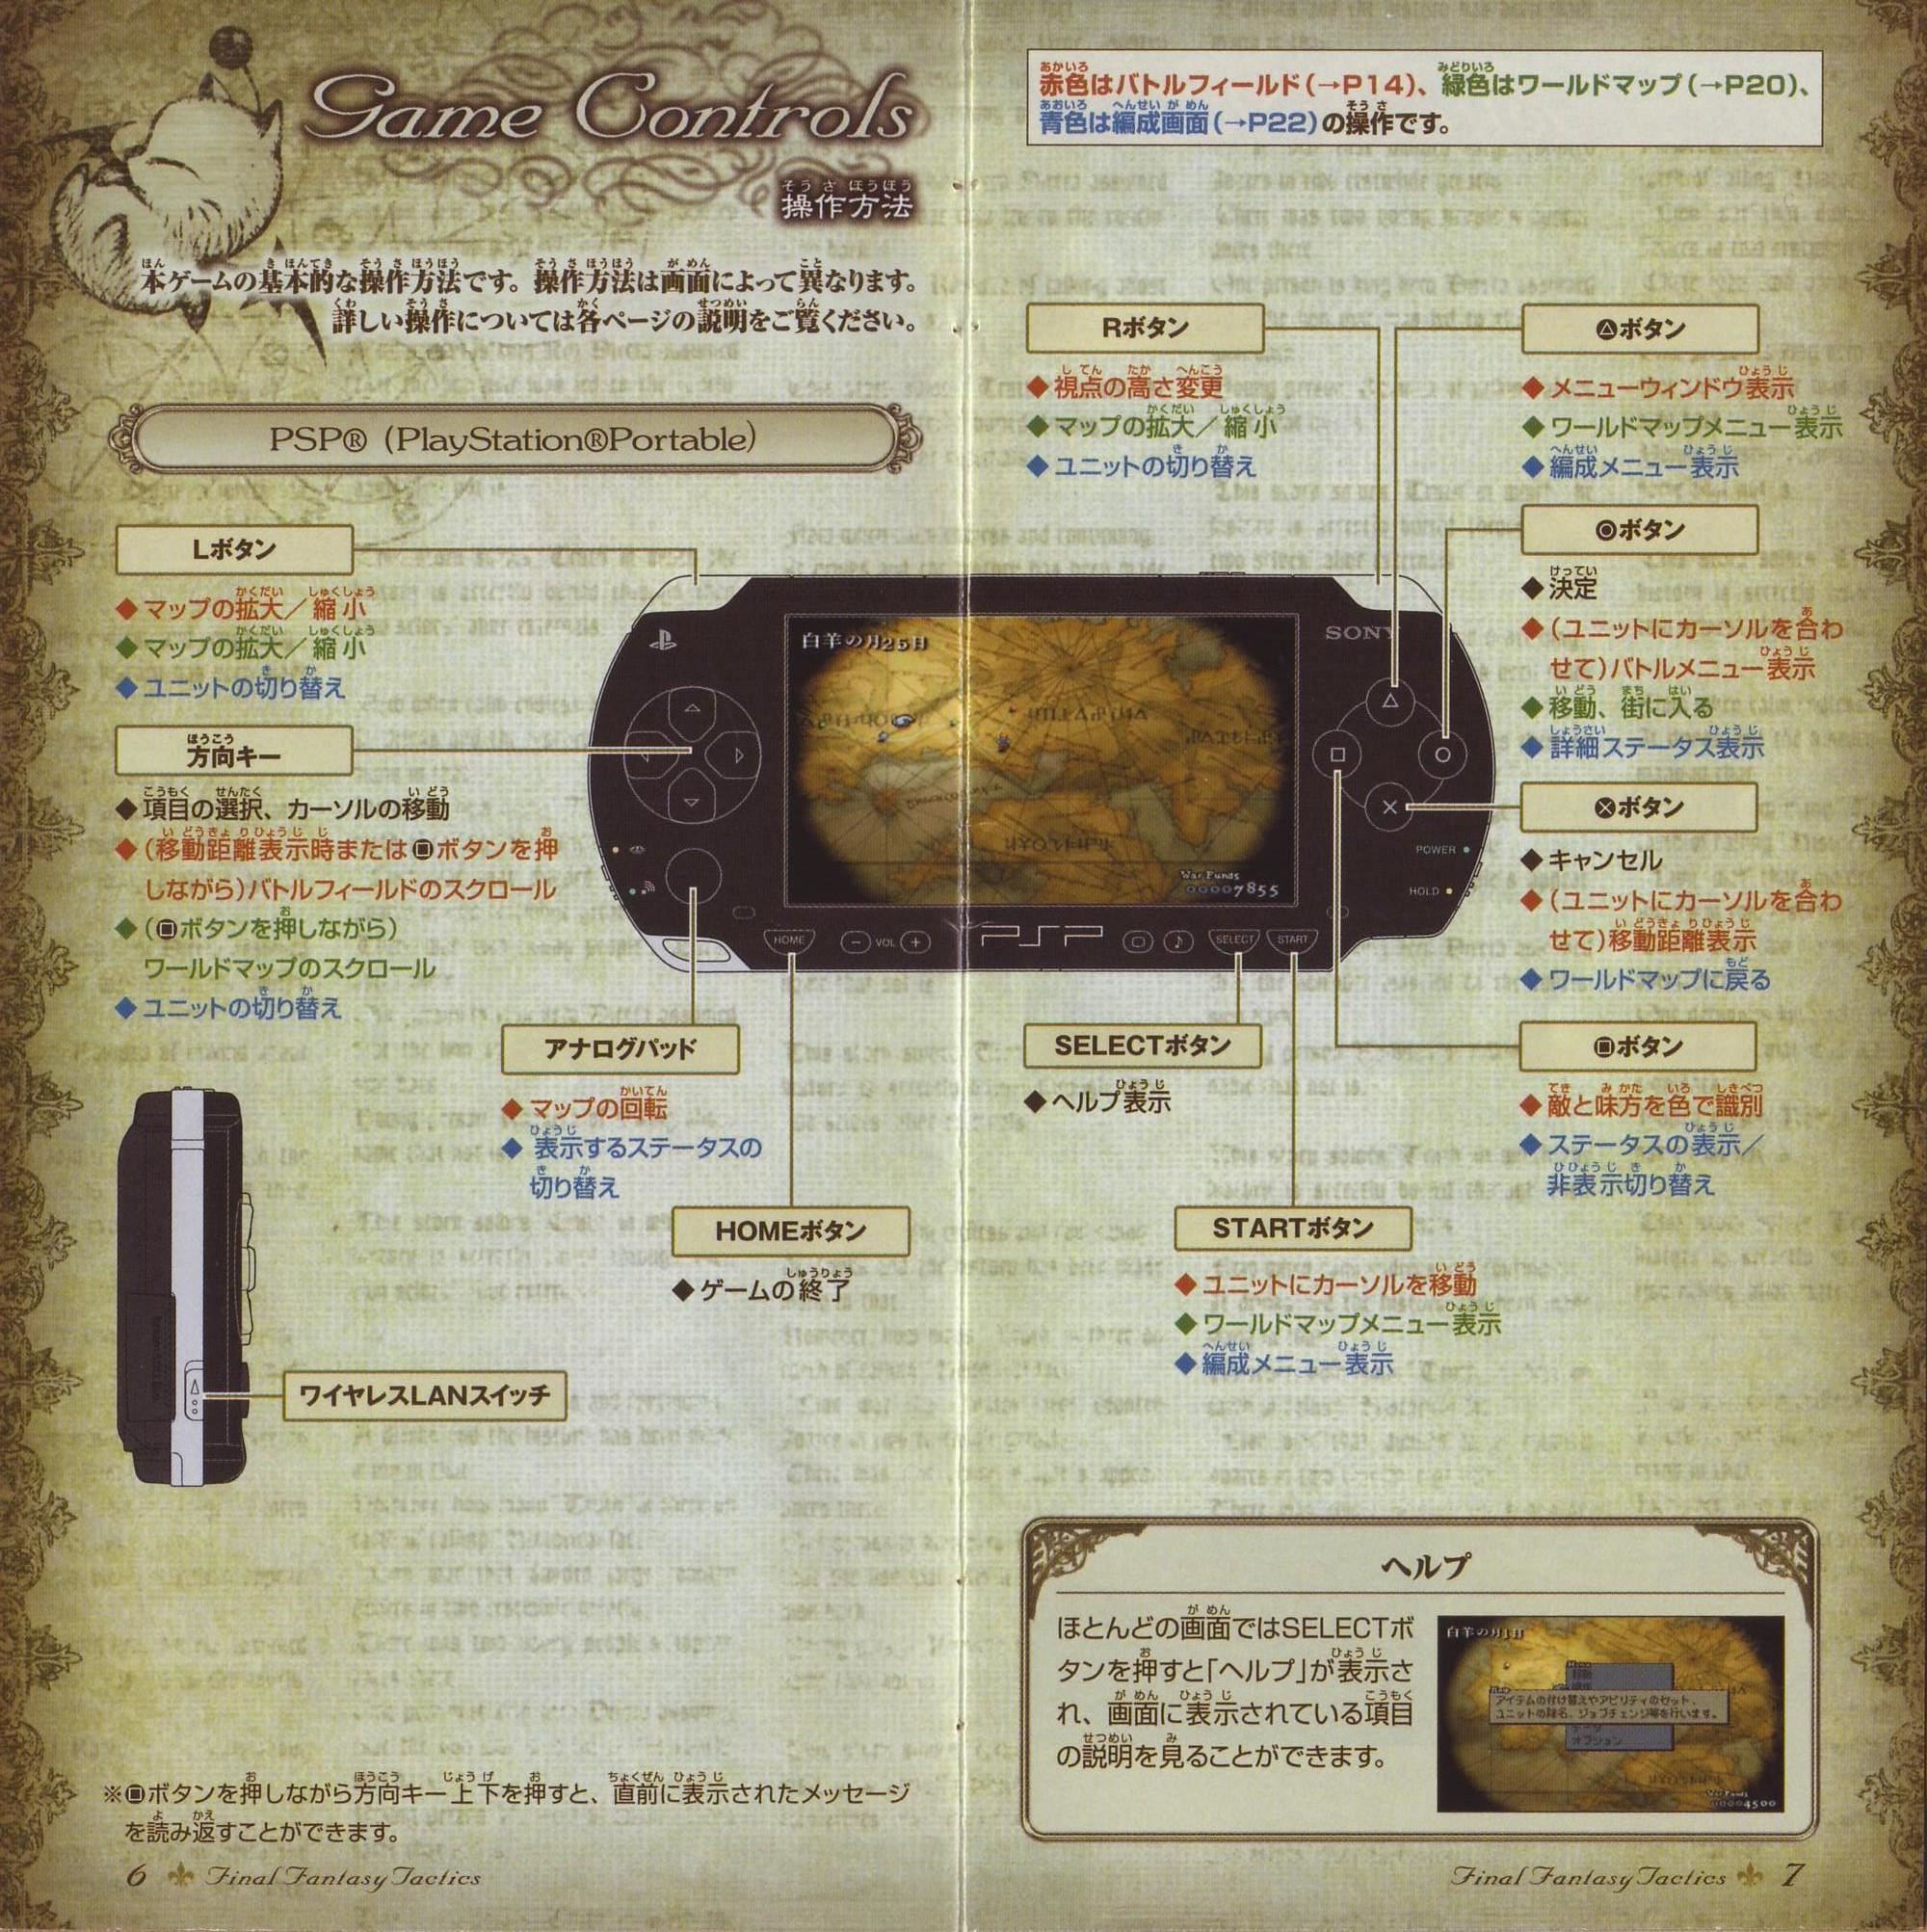 Game Controls
操作方法
本ゲームの基本的な操作方法です。操作方法は画面によって異なります。
詳しい操作については各ページの説明をご覧ください。
PSP® (PlayStation®Portable)
Lボタン
◆マップの拡大／縮小
◆マップの拡大／縮小
◆ユニットの切り替え
方向キー
◆項目の選択、カーソルの移動
◆(移動距離表示時または□ボタンを押
しながら)バトルフィールドのスクロール
◆(□ボタンを押しながら)
ワールドマップのスクロール
◆ユニットの切り替え
アナログパッド
◆マップの回転
◆表示するステータスの
切り替え
HOMEボタン
◆ゲームの終了
ワイヤレスLANスイッチ
※□ボタンを押しながら方向キー上下を押すと、直前に表示されたメッセージ
を読み返すことができます。
6 Final Fantasy Tactics
白羊の月25日
War Funds
00007855
SONY
POWER
HOLD
HOME
− VOL +
PSP
SELECT
START
赤色はバトルフィールド(→P14)、緑色はワールドマップ(→P20)、
青色は編成画面(→P22)の操作です。
Rボタン
◆視点の高さ変更
◆マップの拡大／縮小
◆ユニットの切り替え
△ボタン
◆メニューウィンドウ表示
◆ワールドマップメニュー表示
◆編成メニュー表示
○ボタン
◆決定
◆(ユニットにカーソルを合わ
せて)バトルメニュー表示
◆移動、街に入る
◆詳細ステータス表示
×ボタン
◆キャンセル
◆(ユニットにカーソルを合わ
せて)移動距離表示
◆ワールドマップに戻る
□ボタン
◆敵と味方を色で識別
◆ステータスの表示／
非表示切り替え
SELECTボタン
◆ヘルプ表示
STARTボタン
◆ユニットにカーソルを移動
◆ワールドマップメニュー表示
◆編成メニュー表示
ヘルプ
ほとんどの画面ではSELECTボ
タンを押すと「ヘルプ」が表示さ
れ、画面に表示されている項目
の説明を見ることができます。
白羊の月1日
アイテムの付け替えやアビリティのセット、
ユニットの除名、ジョブチェンジ等を行います。
オプション
War Funds
00004500
Final Fantasy Tactics 7